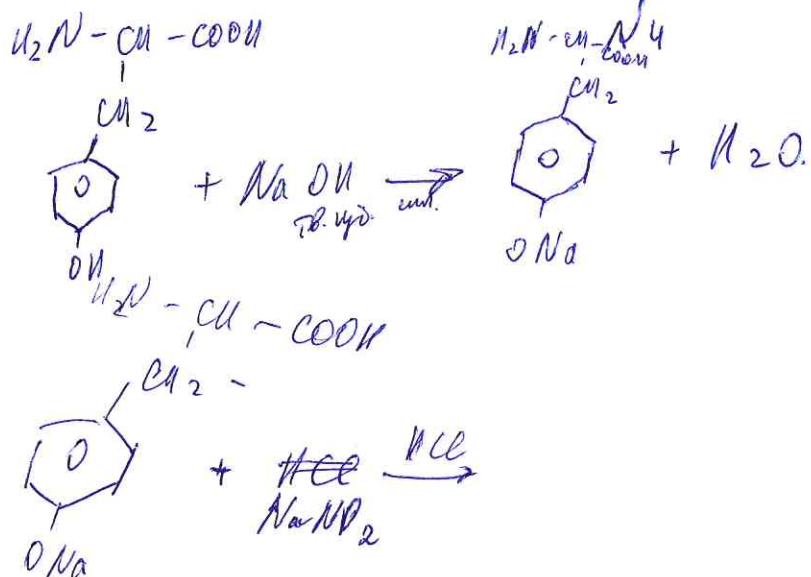 H₂N – CH – COOH
CH₂
OH
+ NaOH →
H₂N – CH – COOH
CH₂
ONa
+ H₂O.
H₂N – CH – COOH
CH₂ –
ONa
+ HCl
NaNO₂
HCl →